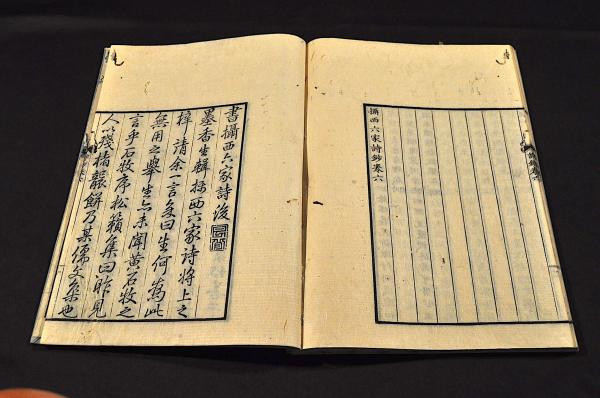 攝西六家詩鈔卷六
書攝西六家詩後
墨香生輯攝西六家詩將上之
梓請余一言余曰生何為此
無用之舉生亦未聞黄石牧之
言乎石牧序松籟集曰昨見
人以殘楮裹餅乃某儒文集也